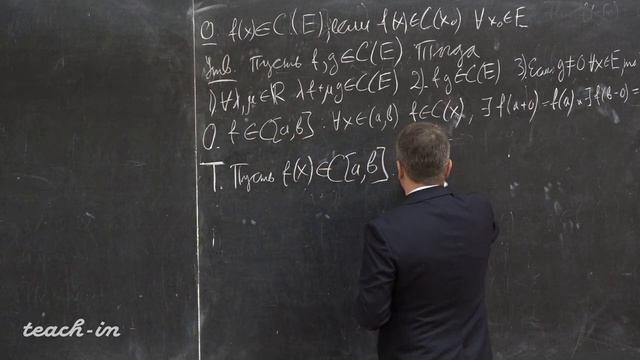 О. f(x)∈C(E), если f(x)∈C(x₀) ∀x₀∈E
Утв. Пусть f,g∈C(E) Тогда
1) ∀λ,μ∈R λf+μg∈C(E) 2) f·g∈C(E) 3) Если g≠0 ∀x∈E, то
О. f∈C[a,b] : ∀x∈(a,b) f∈C(x), ∃ f(a+0)=f(a) и ∃ f(b-0)=
Т. Пусть f(x)∈C[a,b].
teach-in